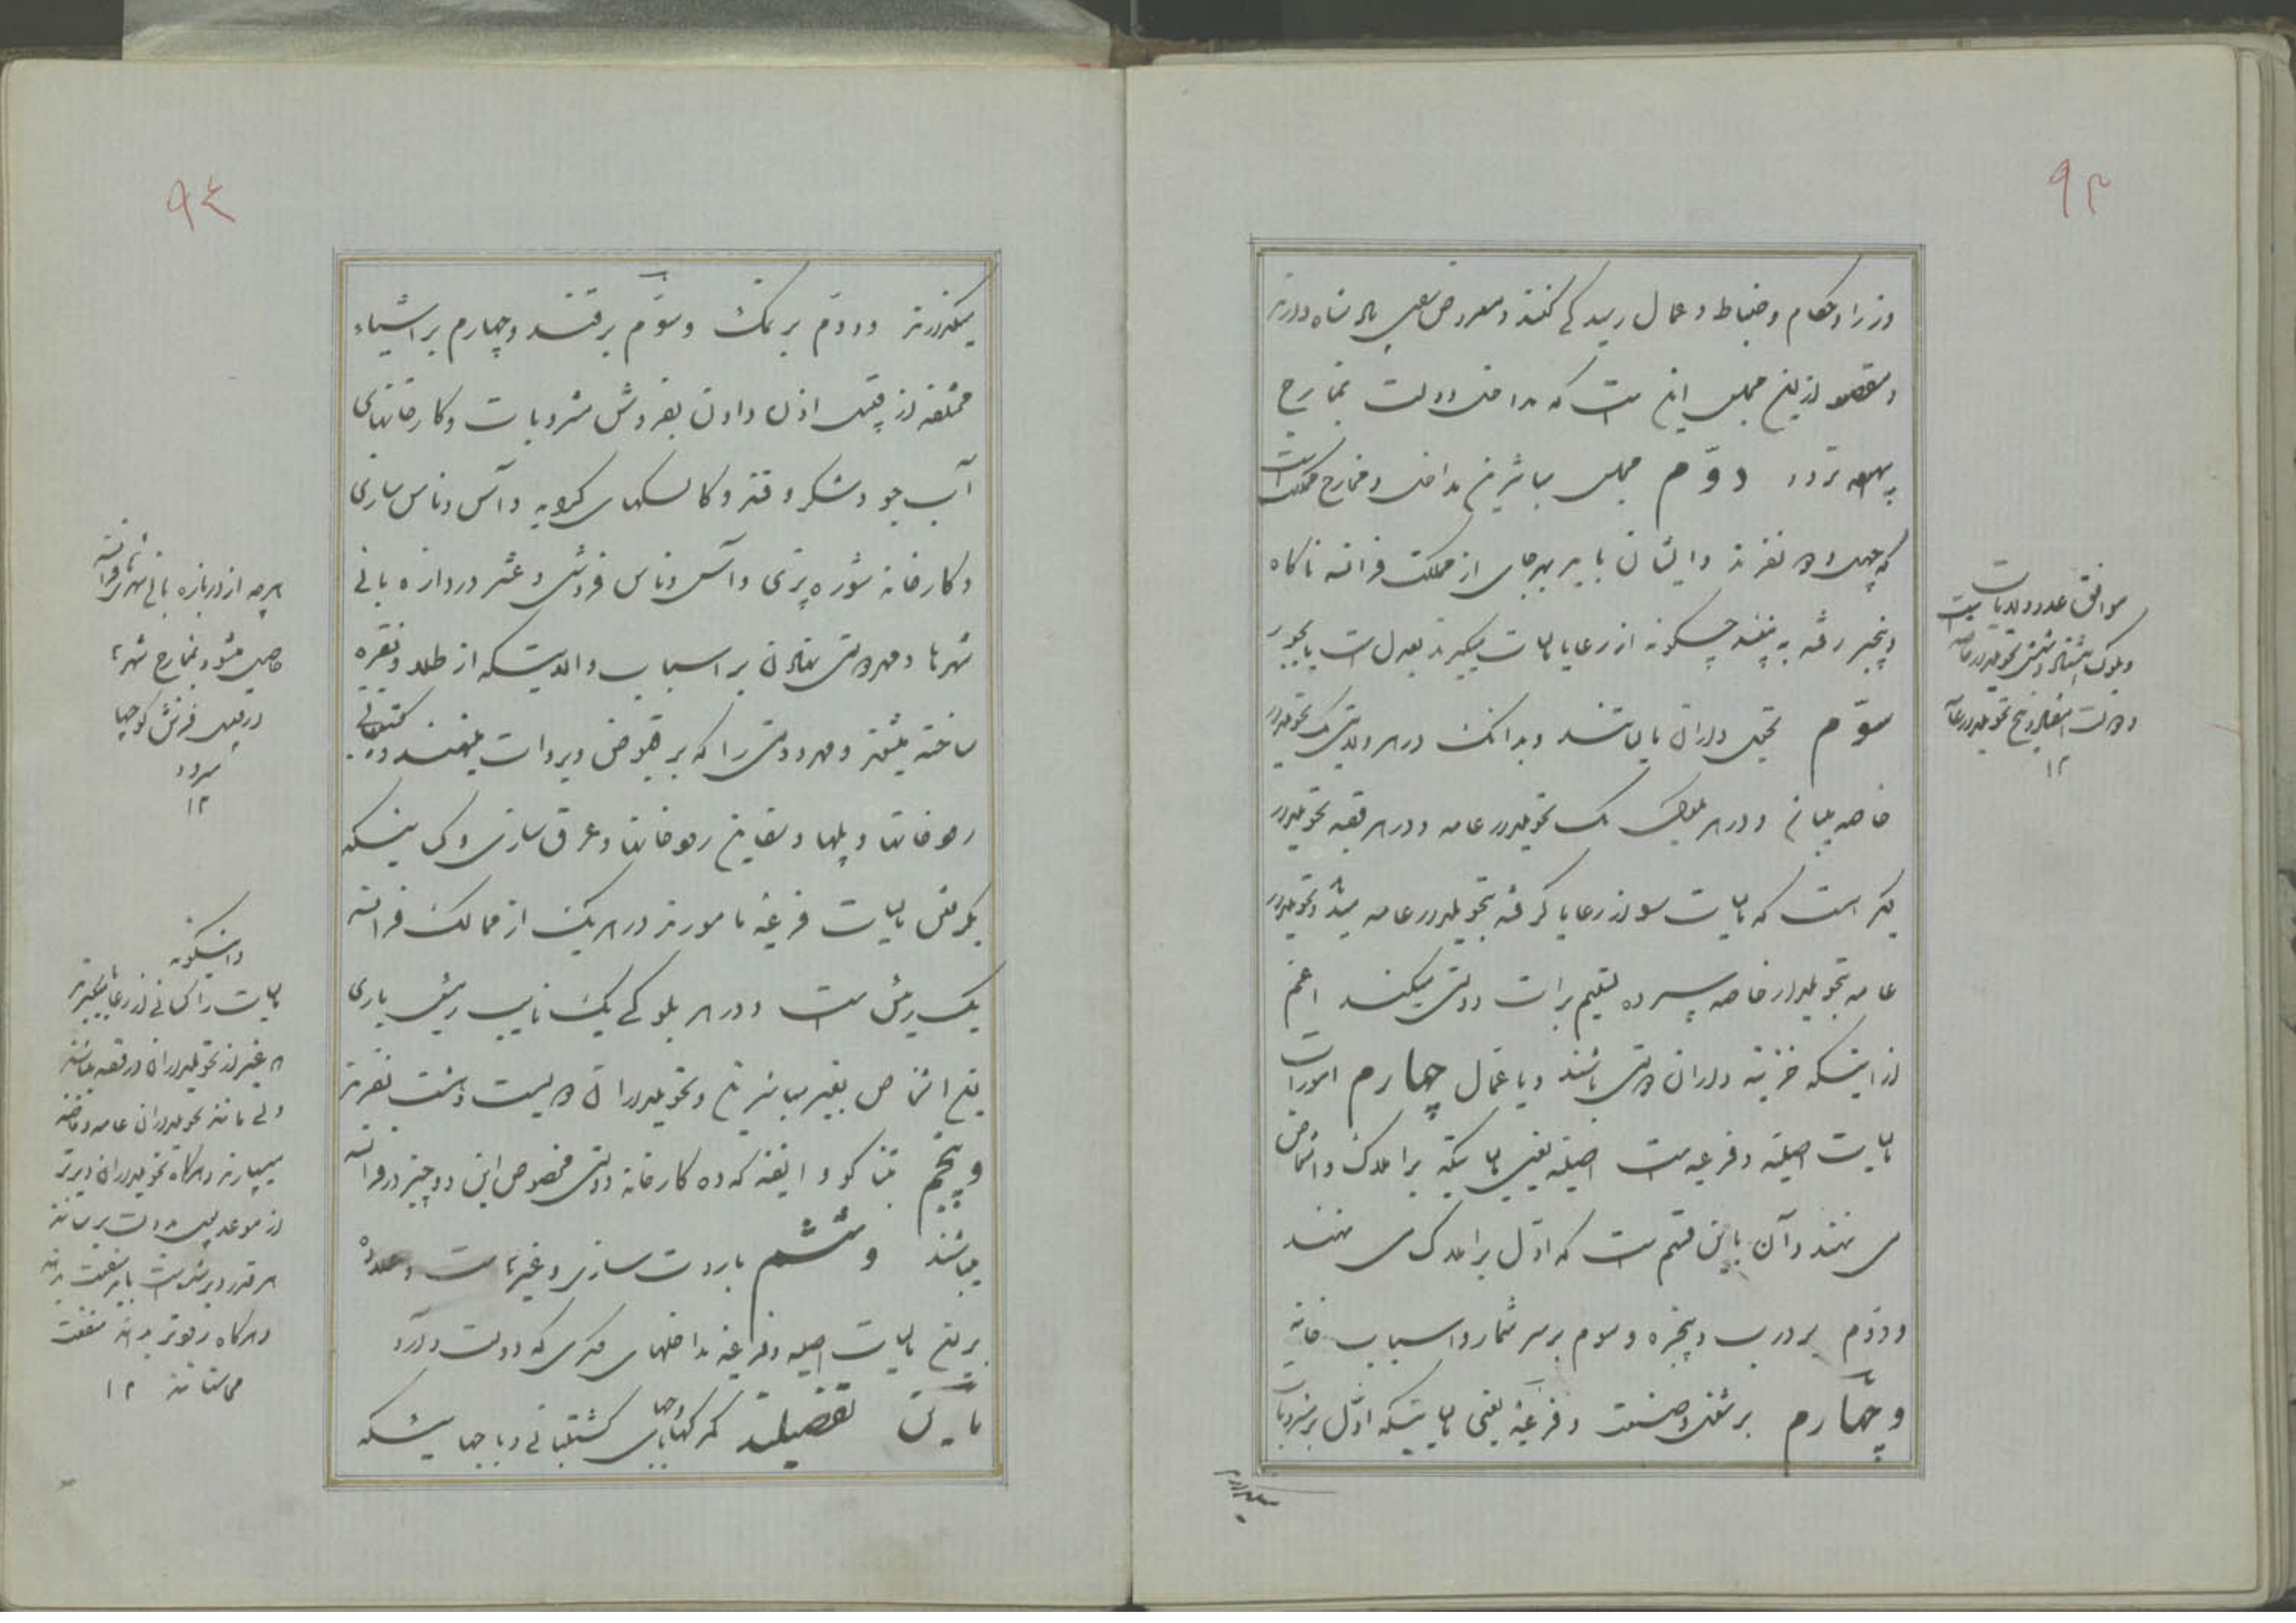 ۹۳
وزرا و حکام و ضباط و عمال رسیدگی کنند و معروض پادشاه دارند
و مقصود ازین مجلس این است که مداخل دولت بمخارج
بیهوده نرود دوّم مجلس مباشرین مداخل و مخارج مملکت است
که چهل و نفرند و ایشان باید بهر جای از مملکت فرانسه ناگاه
و بیخبر رفته به بینند چگونه از رعایا مالیات میگیرند بعدل است یا بجور
سوّم تحویلداران مالیاتند و بدانک در هر ولایتی یک تحویلدار
خاصه میباشد و در هر بلوک یک تحویلدار عامه و در هر قصبه تحویلدار
دیگر است که مالیات را از رعایا گرفته بتحویلدار عامه میدهد و تحویلدار
عامه بتحویلدار خاصه سپرده تسلیم برات دولتی میکند اعم
از اینکه خزینه داران دولتی باشند و یا عمّال چهارم امورات
مالیات اصلیّه و فرعیه است اصلیّه یعنی مالیاتیکه بر املاک و اشخاص
می نهند و آن باین قسم است که اوّل بر املاک می نهند
و دوّم بر درب و پنجره و سوم بر سر شمار و اسباب خانه
و چهارم بر شغل و صنعت و فرعیّه یعنی مالیاتیکه اوّل بر مشروبات
موافق عدد ولایات
و بلوک و تحویلدار خاصه
و تحویلدار عامه
۱۲
میگذارند
۹٤
میگذارند و دوّم بر نمک و سوّم بر قند و چهارم بر اشیاء
مختلفه از قبیل اذن دادن بفروش مشروبات و کارخانهای
آب جو و شکر و قند و کالسکهای کرایه و آس و ناس سازی
و کارخانه شوره پزی و آس و ناس فروشی و عشر دروازه بانی
شهرها و مهر دولتی نهادن بر اسباب و آلاتیکه از طلا و نقره
ساخته میشود و مهر دولتی را که بر قبوض و بروات مینهند و کشتیبانی
رودخانها و پلها و سفاین رودخانها و عرق سازی و کسانیکه
بگرفتن مالیات فرعیّه مامورند در هر یک از ممالک فرانسه
یک رئیس است و در هر بلوکی یک نایب رئیس باری
این اشخاص بغیر مباشرین و تحویلداران دویست و شصت نفرند
و پنجم تنباکو و انفیه که ده کارخانه دولتی مخصوص این دو چیز در فرانسه
میباشد و ششم باروت سازی و غیرها است و علاوه
بر این مالیات اصلیه و فرعیّه مداخلهای دیگری که دولت دارد
باین تفضیلند گمرکها و باجهای کشتیبانی و باجهائیکه
هر چه از دروازه بانی شهرهای فرانسه
حاصل میشود بمخارج شهرها
از قبیل فرش کوچها
میرود
۱۲
و اینگونه
مالیات را کسانی از رعایا میگیرند
غیر از تحویلداران قصبه میباشند
ولی مانند تحویلداران عامه و خاصه
میسپارند و هرگاه تحویلداران دیرتر
از موعد بدولت برسانند
هر قدر دیر شده است باید منفعت بدهند
و هرگاه زودتر بدهند منفعت
می ستانند ۱۲